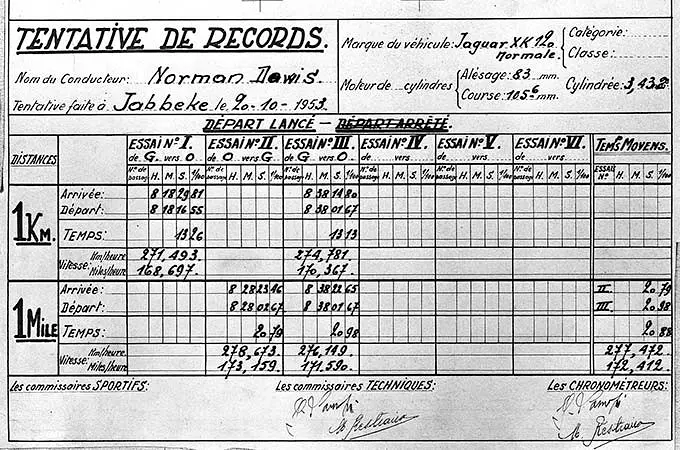 TENTATIVE DE RECORDS.
Nom du Conducteur: Norman Dewis.
Tentative faite à Jabbeke le 20-10-1953.
Marque du véhicule: Jaguar XK 120
Normale.
Catégorie:
Classe:
Moteur de cylindres
Alésage: 83 mm.
Course: 105⁶ mm.
Cylindrée: 3,432
DÉPART LANCÉ – DÉPART ARRÊTÉ.
DISTANCES
ESSAI Nº I. ESSAI Nº II. ESSAI Nº III. ESSAI Nº IV. ESSAI Nº V. ESSAI Nº VI. TEMPS MOYENS.
de G. vers O. de O. vers G. de G. vers O. de vers de vers de vers
Nº de passage H. M. S. 1/100 Nº de passage H. M. S. 1/100 Nº de passage H. M. S. 1/100 Nº de passage H. M. S. 1/100 Nº de passage H. M. S. 1/100 Nº de passage H. M. S. 1/100 ESSAIS Nº H. M. S. 1/100
1 KM.
Arrivée: 8 18 29 81 8 38 14 80
Départ: 8 18 16 55 8 38 01 67
TEMPS: 13 26 13 13
Vitesse: Km/heure 271,493. 274,781.
Miles/heure 168,697. 170,367.
1 MILE
Arrivée: 8 28 23 46 8 38 22 65 II 20 79
Départ: 8 28 02 67 8 38 01 67 III 20 98
TEMPS: 20 79 20 98 20 88
Vitesse: Km/heure. 278,673. 276,149. 277,472.
Miles/heure 173,159. 171,590. 172,412.
Les commissaires SPORTIFS: Les commissaires TECHNIQUES: Les CHRONOMÉTREURS: